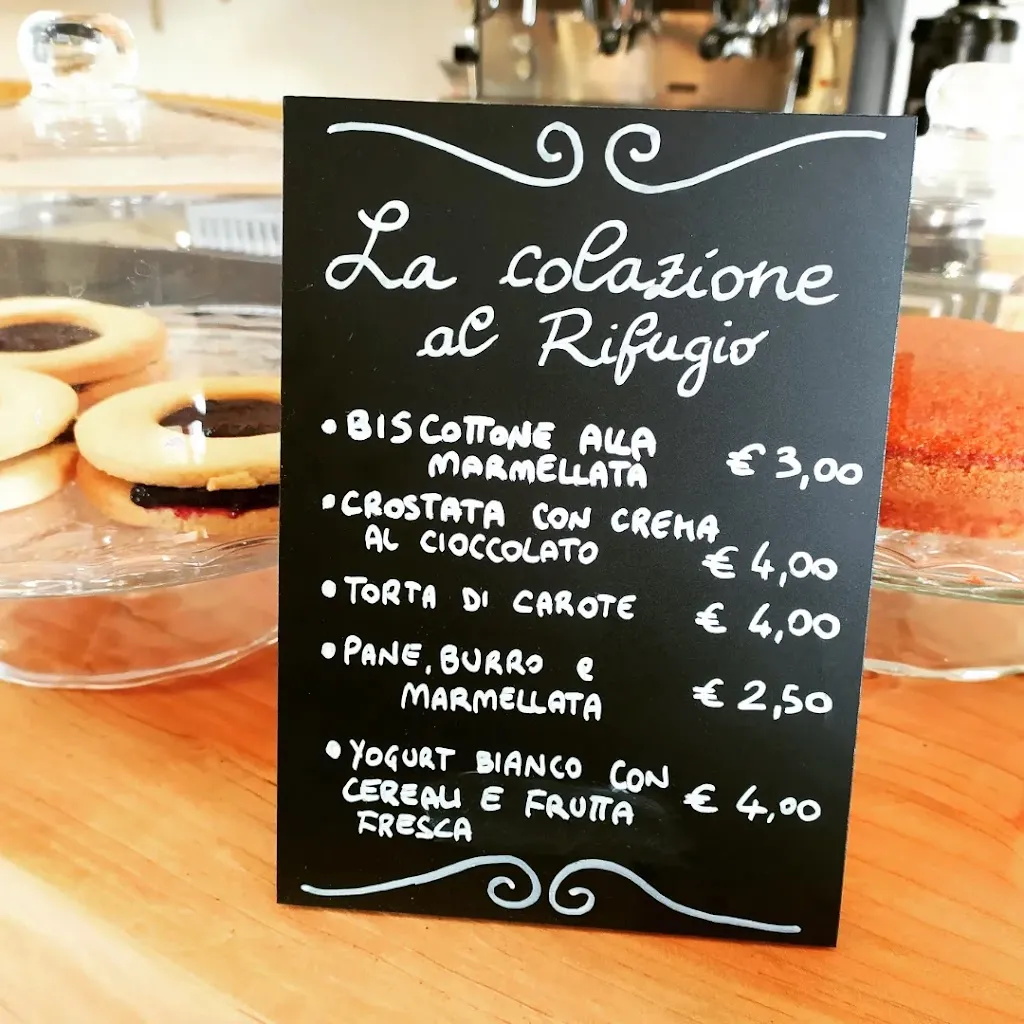 La colazione
al Rifugio
• BISCOTTONE ALLA
MARMELLATA € 3,00
• CROSTATA CON CREMA
AL CIOCCOLATO € 4,00
• TORTA DI CAROTE € 4,00
• PANE, BURRO e
MARMELLATA € 2,50
• YOGURT BIANCO CON
CEREALI E FRUTTA € 4,00
FRESCA